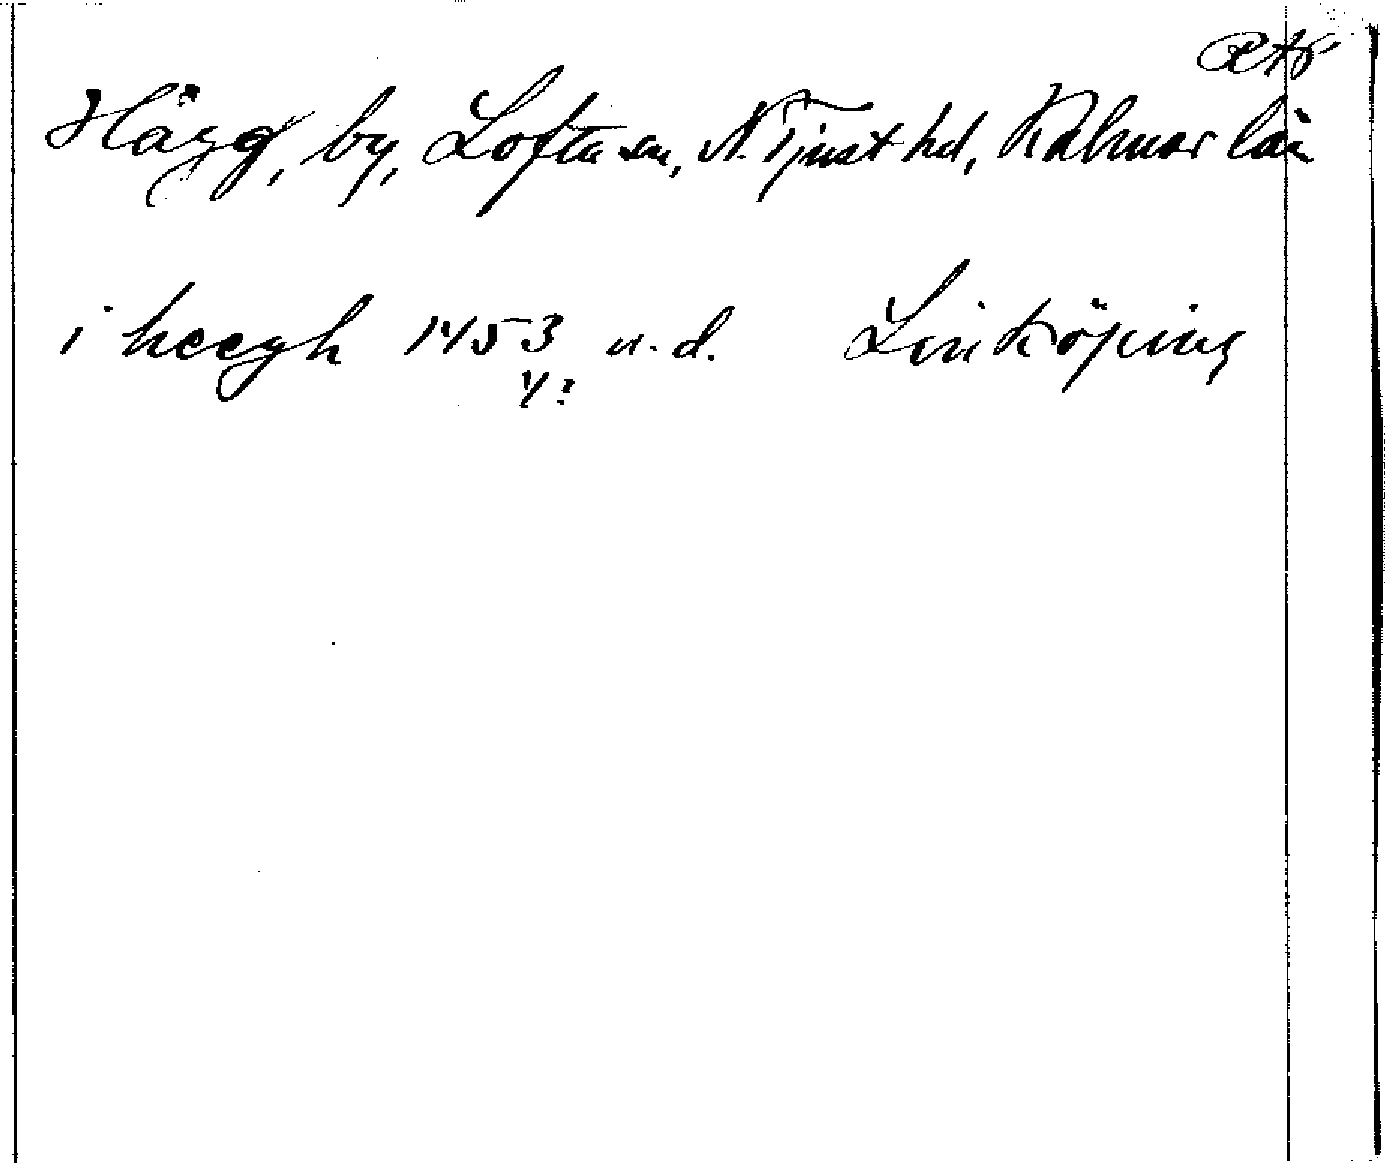 Hägg, by, Lofta sn, N. Tjust hd, Kalmar län
i heegh 1453 u.d. Linköping